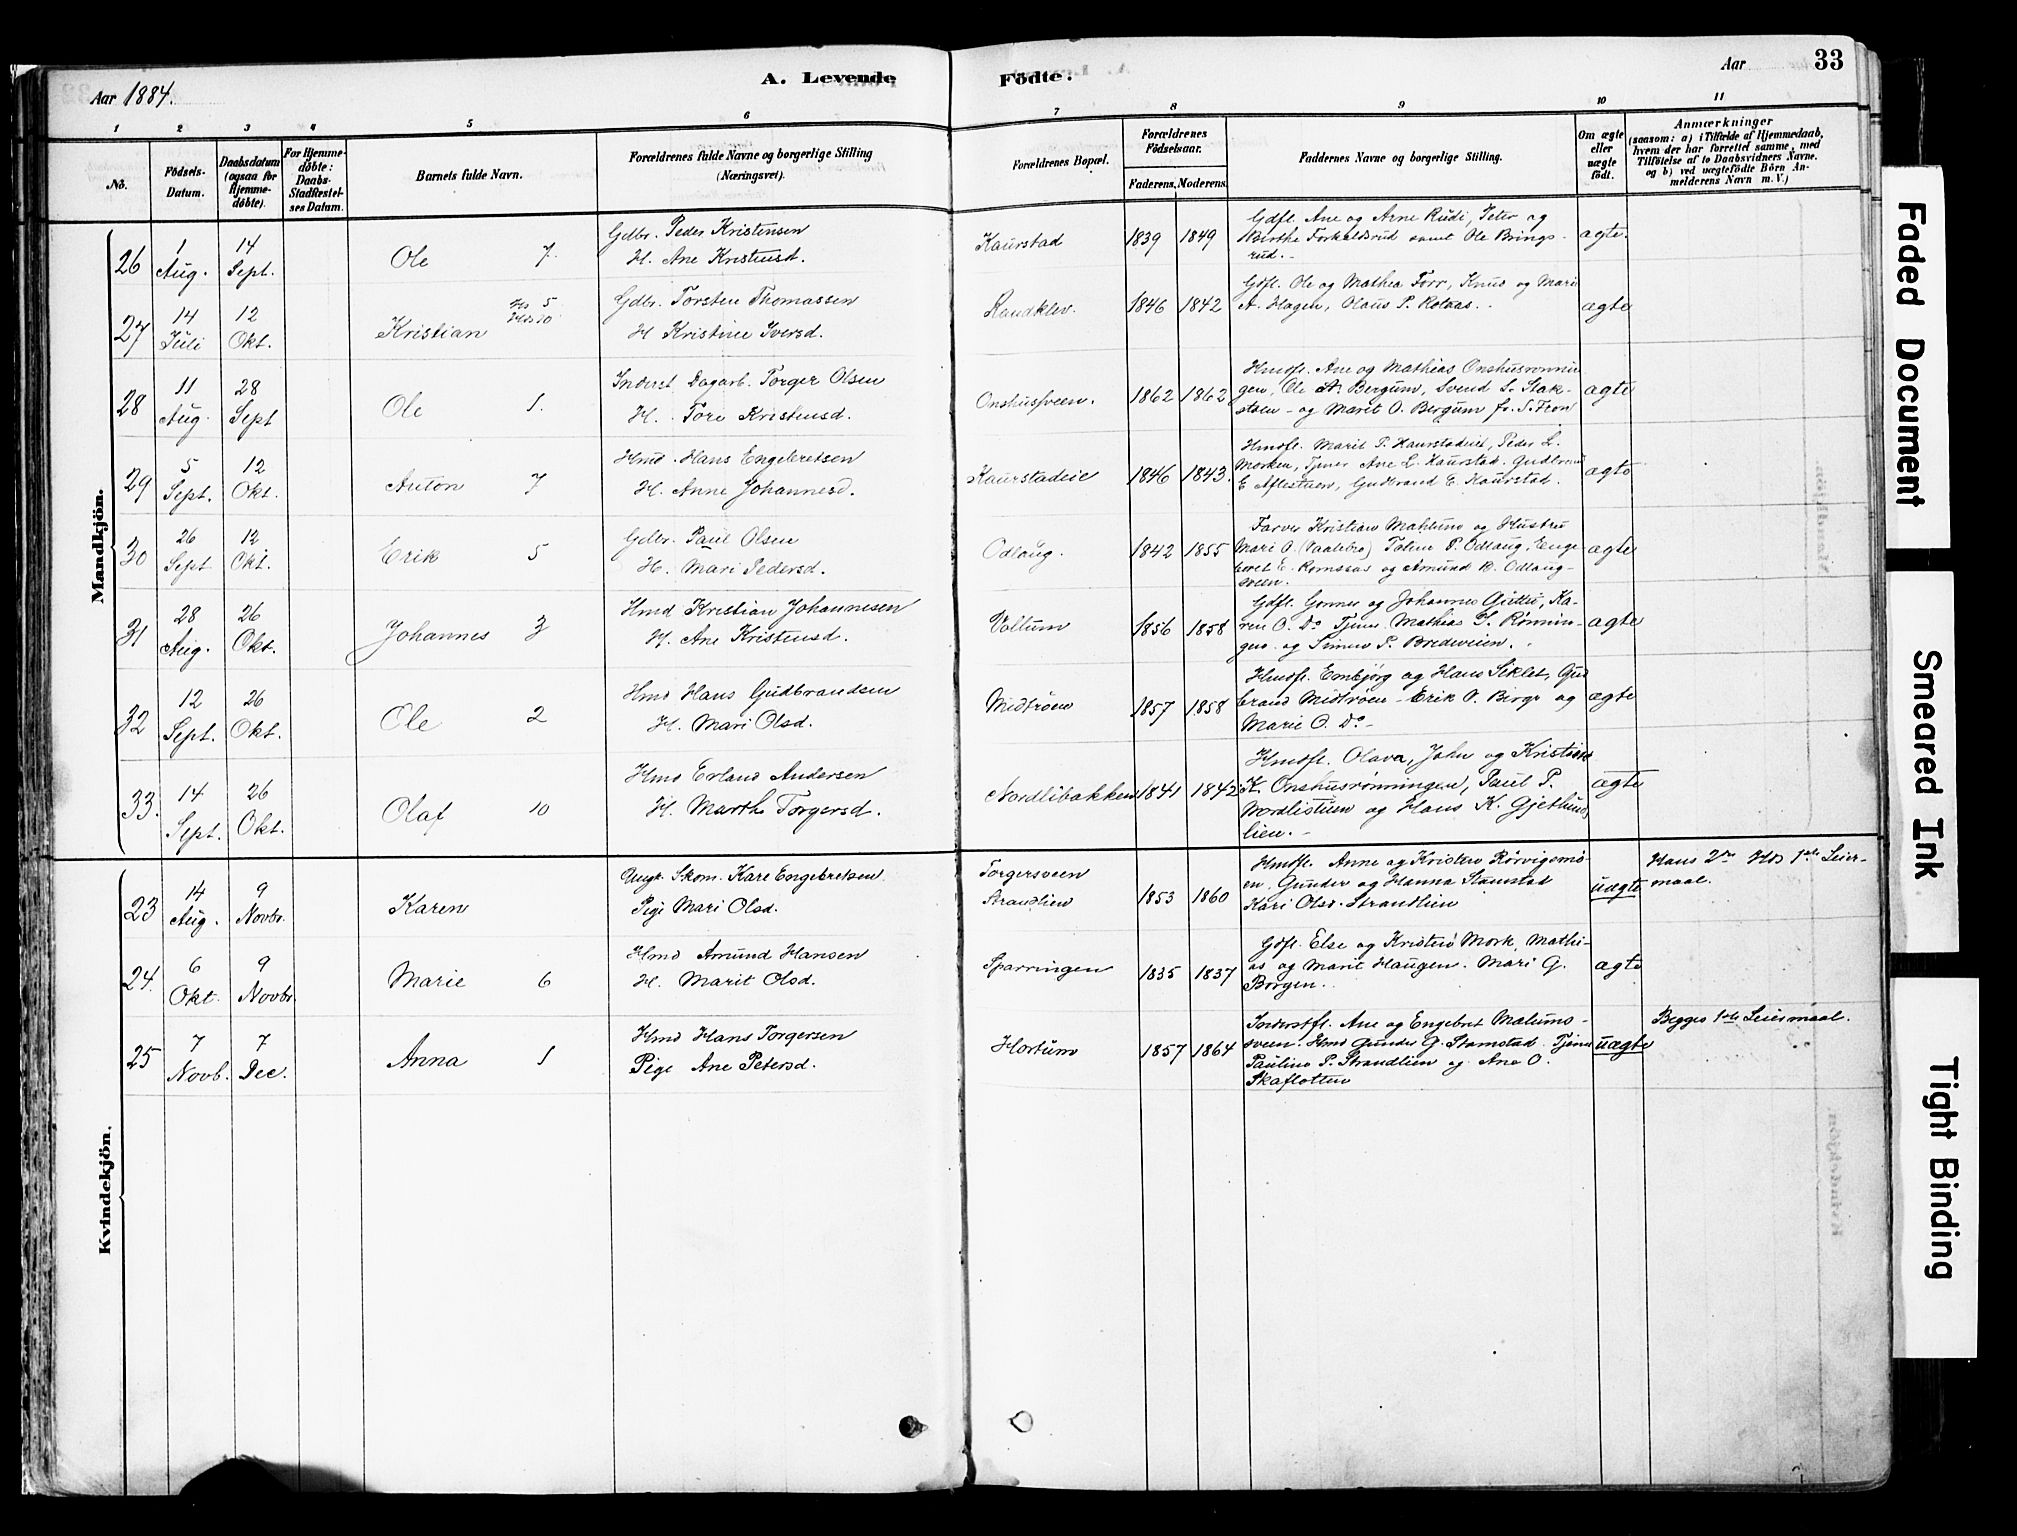 Aar 1884.
A. Levende
Födte.
Aar
33
1 2 3 4 5 6 7 8 9 10 11
No.
Födsels-Datum.
Daabsdatum (ogsaa for Hjemme-döbte).
For Hjemme-döbte: Daabs-Stadfæstel-ses Datum.
Barnets fulde Navn.
Forældrenes fulde Navne og borgerlige Stilling (Næringsvei).
Forældrenes Bopæl.
Forældrenes Födselsaar.
Faderens. Moderens.
Faddernes Navne og borgerlige Stilling.
Om ægte eller uægte födt.
Anmærkninger
(saasom: a) i Tilfælde af Hjemmedaab, hvem der har forrettet samme, med Tilföielse af to Daabsvidners Navne. og b) ved uægtefödte Börn An-melderens Navn m. V.)
Mandkjön.
26
1 Aug.
14 Sept.
Ole 7
Gdbr. Peder Kristensen
H. Ane Kristensd.
Kaurstad
1839 1849
Gdfl. Ane og Arne Rudi, Peter og
Birthe Forkalsrud samt Ole Brings-
rud.-
ægte.
27
14 Juli
12 Okt.
Kristian
Gdbr. Torsten Thomassen
H Kristine Iversd.
Randklev.
1846 1842
Gdfl. Ole og Mathea Forr, Knud og Mari
A. Hagen, Olaus P. Kolaas.
ægte
28
11 Aug.
28 Sept
Ole 1.
Inderst Dagarb. Torger Olsen
H. Tore Kristensd.
Onshussveen.
1862 1862
Hmdfl. Ane og Mathias Onshusrønnin
gen, Ole A. Bergum, Svend S. Stak-
stuen - og Marit O. Bergum fr. S. Fron
ægte
29
5 Sept.
12 Okt.
Anton 7
Hmd. Hans Engebretsen
H. Anne Johannesd.
Kaurstadeie
1846 1843.
Hmdfl. Marit P. Kaurstadeie, Peder L.
Morken, Tjener Ane L. Kaurstad. Gudbrand
E Aflestuen, Gudbrand E. Kaurstad.
ægte
30
26 Sept
12 Okt.
Erik 5
Gdbr. Paul Olsen
H. Mari Pedersd.
Odlaug.
1842 1855
Farver Kristian Mahlum og Hustru
Mari O. (Vaalebro) Johan P. Odlaug, Enge
bret E. Kornsaas og Amund B. Odlaug-
sveen.
ægte
31
28 Aug.
26 Okt.
Johannes 3
Hmd Kristian Johannesen
H. Ane Kristensd.
Vollum
1856 1858
Gdfl. Gonner og Johannes Gutto, Ka-
ren O. Do Tjener Mathias G. Rønnin-
gen og Simen P. Bredeveien.
ægte
32
12 Sept.
26 Okt.
Ole 2
Hmd Hans Gudbrandsen
H. Mari Olsd.
Midtrøen
1857 1858
Hmdfl. Embjørg og Hans Siklet, Gud
brand Midtrøen - Erik O. Birge og
Marie O. Do-
ægte
33.
14 Sept.
26 Okt.
Olaf 10
Hmd Erland Andersen
H. Marthe Torgersd.
Nordlibakken
1841 1842
Hmdfl. Olava, John og Kristian
K. Onshusrønningen, Paul P.
Nordlistuen og Hans K. Gjethus
lien.-
ægte
Kvindekjön.
23
14 Aug.
9 Novbr.
Karen
Ungk. Skom. Kare Engebretsen
Pige Mari Olsd.
Torgersveen
Strandlien
1853 1860
Hmdfl. Anne og Kristen Rørvigsmo-
en. Gunder og Hanna Stamstad
Kari Olsd. Strandlien
uægte
Hans 2de Hds 1ste Leier-
maal.
24.
6 Okt.
9 Novbr.
Marie 6
Hmd Amund Hansen
H. Marit Olsd.
Sparringen
1835 1837
Gdfl. Else og Kristen Mork, Mathi-
as og Marit Haugen. Mari G.
Borgen.
ægte
25
7 Novb.
7 Dec.
Anna 1
Hmd Hans Torgersen
Pige Ane Petersd.
Hortum
1857 1864
Inderstfl. Ane og Engebret Malums-
sveen. Hmd Gunder G. Stamstad. Tjener
Pauline P. Strandlien og Ane O.
Skaflotten
uægte
Begges 1ste Leiermaal.
Faded Document
Smeared Ink
Tight Binding